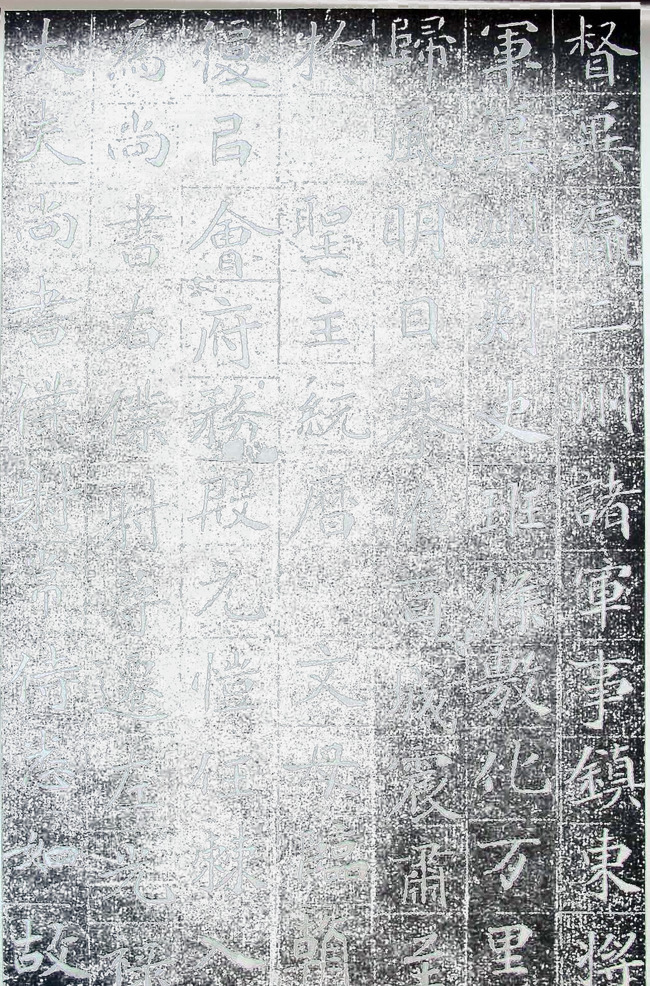 督二州諸軍事鎮東將
軍冀州刺史班條敷化万里
歸風明日高城宸肅至
於聖主統曆文母臨朝
優㠯會府務殷元愷任棘入
為尚書右僕射尋遷左光祿
大夫尚書僕射常侍悉如故